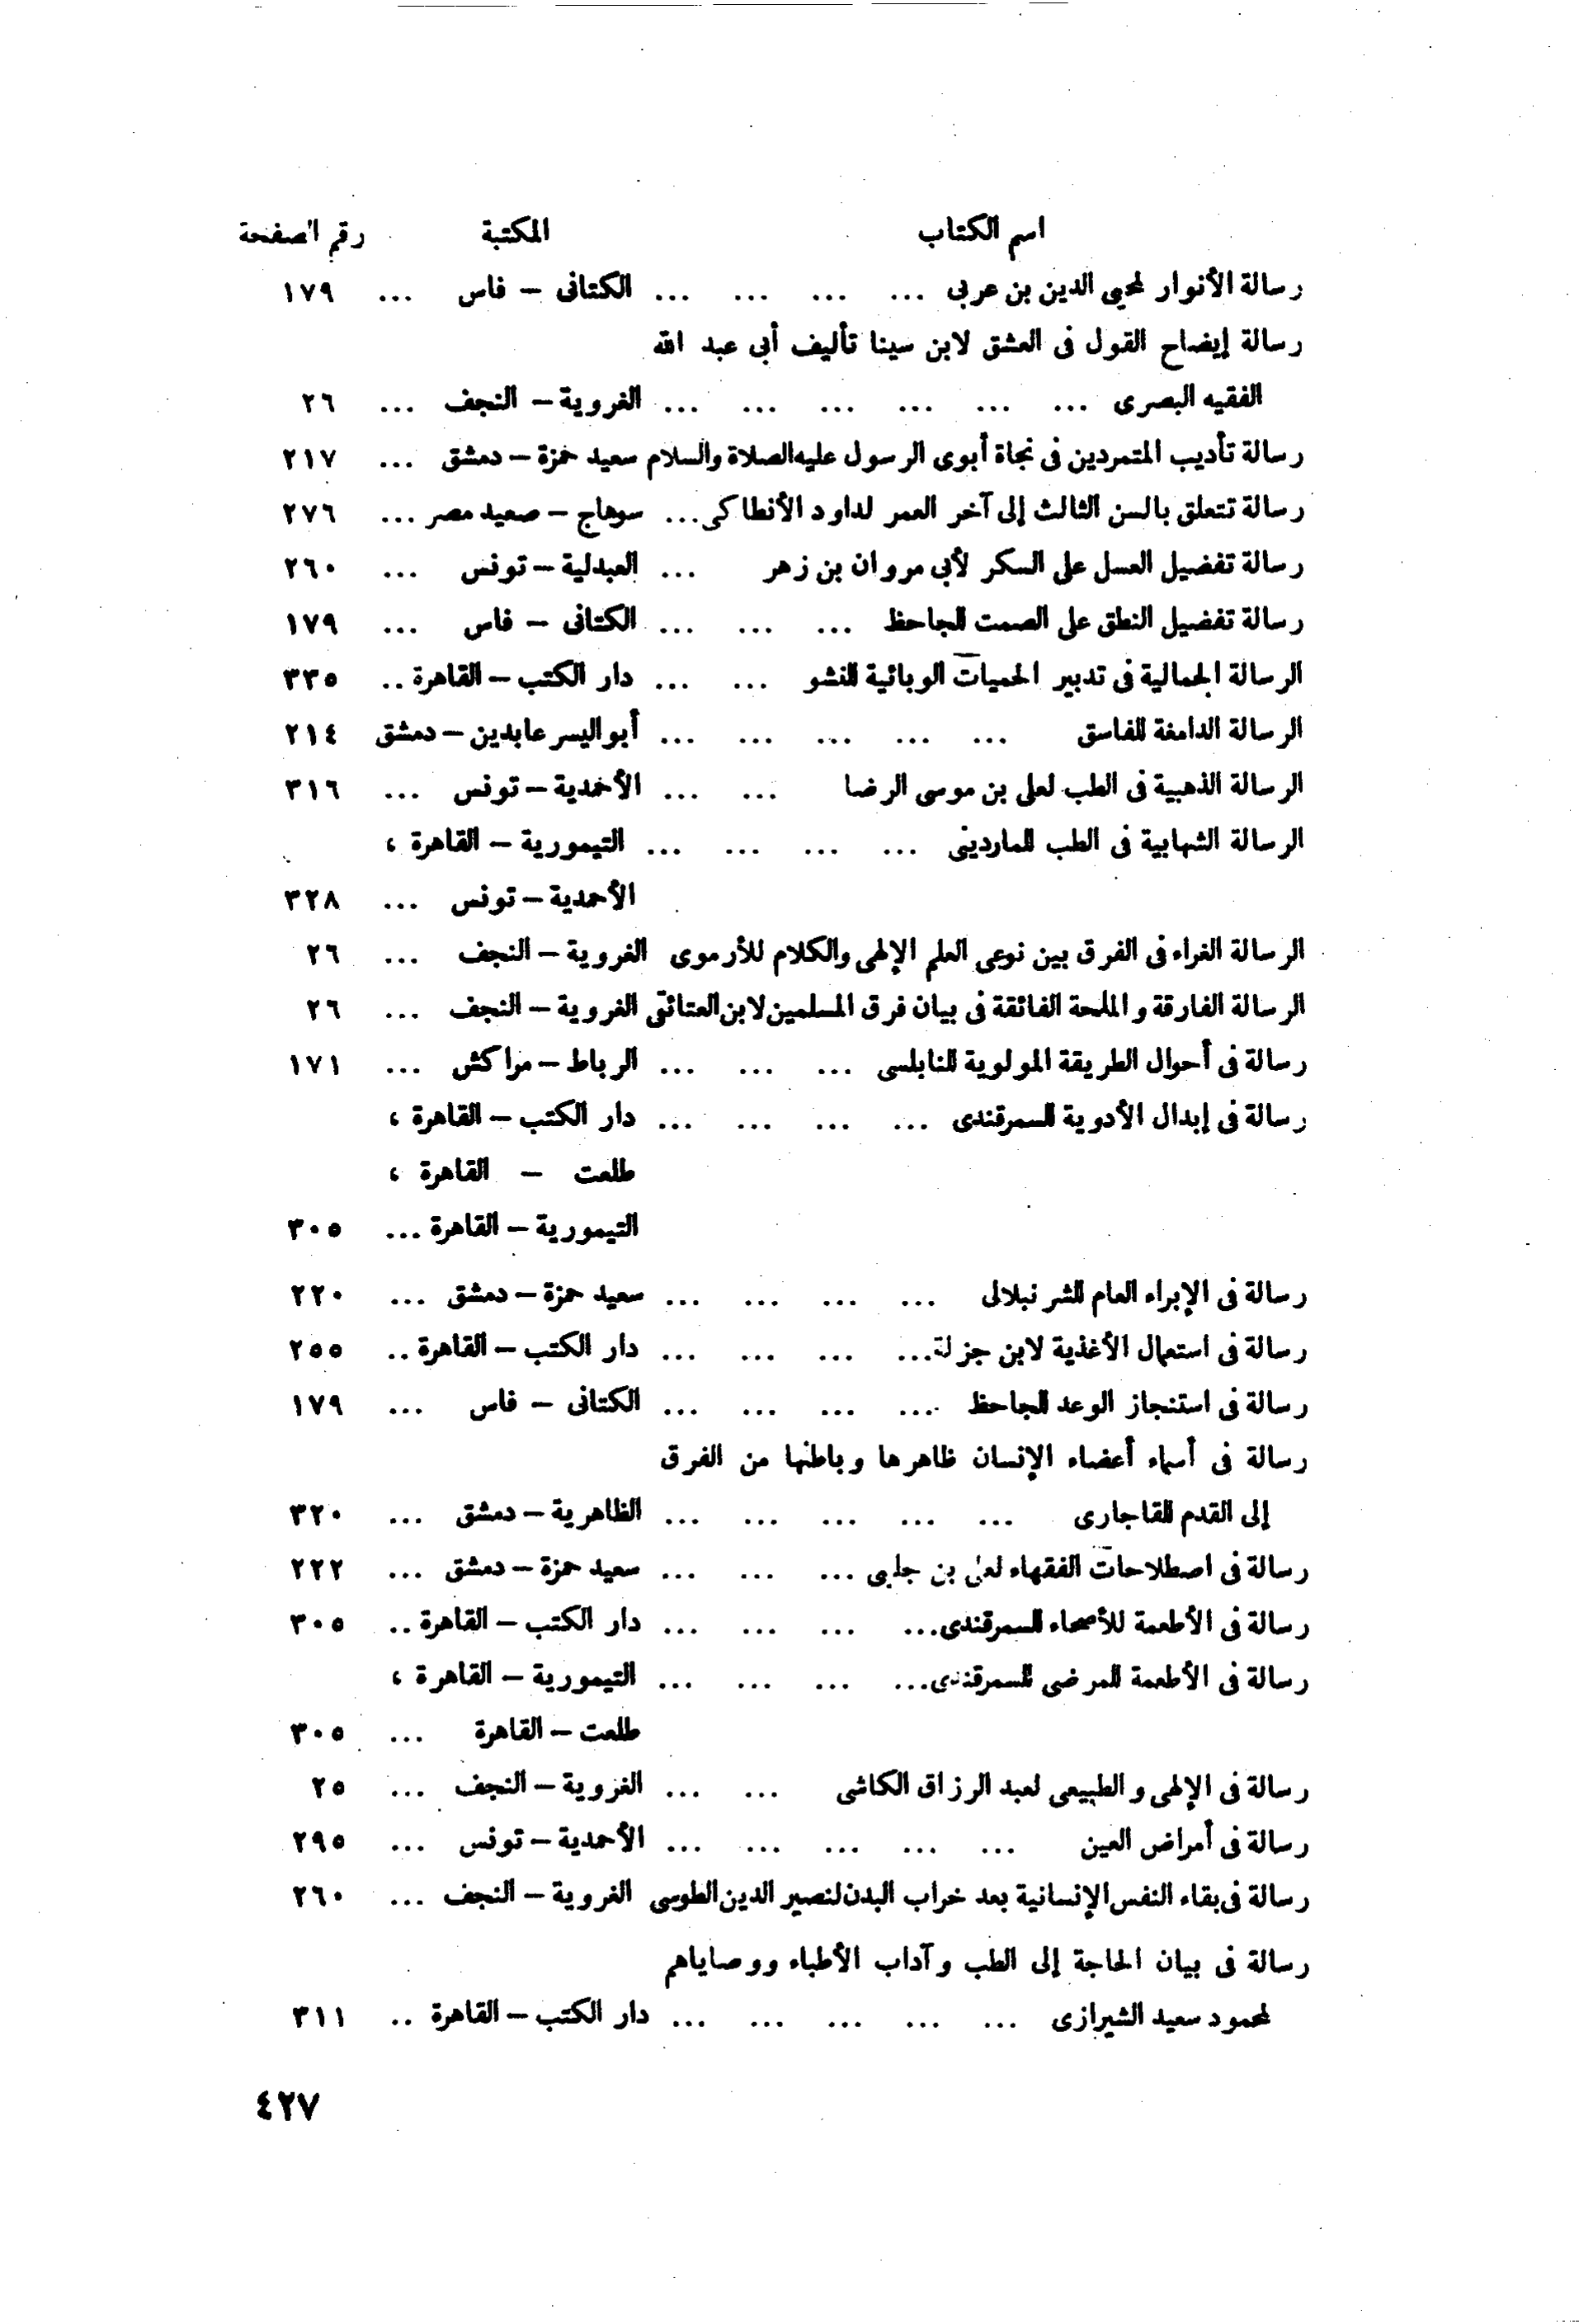 اسم الكتاب المكتبة رقم الصفحة
رسالة الأنوار لمحيى الدين بن عربى ... ... ... ... الكتانى – فاس ... ١٧٩
رسالة إيضاح القول فى العشق لابن سينا تأليف أبى عبد الله
الفقيه البصرى ... ... ... ... ... ... الغروية – النجف ... ٢٦
رسالة تأديب المتمردين فى نجاة أبوى الرسول عليه الصلاة والسلام سعيد حمزة – دمشق ... ٢١٧
رسالة تتعلق بالسن الثالث إلى آخر العمر لداود الأنطاكى ... سوهاج – صعيد مصر ... ٢٧٦
رسالة تفضيل العسل على السكر لأبى مروان بن زهر ... العبدلية – تونس ... ٢٦٠
رسالة تفضيل النطق على الصمت للجاحظ ... ... ... الكتانى – فاس ... ١٧٩
الرسالة الجمالية فى تدبير الحميات الوبائية للنشو ... ... دار الكتب – القاهرة .. ٣٣٥
الرسالة الدامغة للفاسق ... ... ... ... ... أبو اليسر عابدين – دمشق ٢١٤
الرسالة الذهبية فى الطب لعلى بن موسى الرضا ... ... الأحمدية – تونس ... ٣١٦
الرسالة الشهابية فى الطب للماردينى ... ... ... ... التيمورية – القاهرة ،
الأحمدية – تونس ... ٣٢٨
الرسالة الغراء فى الفرق بين نوعى العلم الإلهى والكلام للأرموى الغروية – النجف ... ٢٦
الرسالة الفارقة والملحة الفائقة فى بيان فرق المسلمين لابن العتائقى الغروية – النجف ... ٢٦
رسالة فى أحوال الطريقة المولوية للنابلسى ... ... ... الرباط – مراكش ... ١٧١
رسالة فى إبدال الأدوية للسمرقندى ... ... ... ... دار الكتب – القاهرة ،
طلعت – القاهرة ،
التيمورية – القاهرة ... ٣٠٥
رسالة فى الإبراء العام للشرنبلالى ... ... ... ... سعيد حمزة – دمشق ... ٢٢٠
رسالة فى استعمال الأغذية لابن جزلة ... ... ... ... دار الكتب – القاهرة .. ٢٥٥
رسالة فى استنجاز الوعد للجاحظ ... ... ... ... الكتانى – فاس ... ١٧٩
رسالة فى أسماء أعضاء الإنسان ظاهرها وباطنها من الفرق
إلى القدم للقاجارى ... ... ... ... ... الظاهرية – دمشق ... ٣٢٠
رسالة فى اصطلاحات الفقهاء لعلى بن جلبى ... ... ... سعيد حمزة – دمشق ... ٢٢٢
رسالة فى الأطعمة للأصحاء للسمرقندى ... ... ... ... دار الكتب – القاهرة .. ٣٠٥
رسالة فى الأطعمة للمرضى للسمرقندى ... ... ... ... التيمورية – القاهرة ،
طلعت – القاهرة ... ٣٠٥
رسالة فى الإلهى والطبيعى لعبد الرزاق الكاشى ... ... الغروية – النجف ... ٢٥
رسالة فى أمراض العين ... ... ... ... ... الأحمدية – تونس ... ٢٩٥
رسالة فى بقاء النفس الإنسانية بعد خراب البدن لنصير الدين الطوسى الغروية – النجف ... ٢٦٠
رسالة فى بيان الحاجة إلى الطب وآداب الأطباء ووصاياهم
لمحمود سعيد الشيرازى ... ... ... ... ... دار الكتب – القاهرة .. ٣١١
٤٢٧